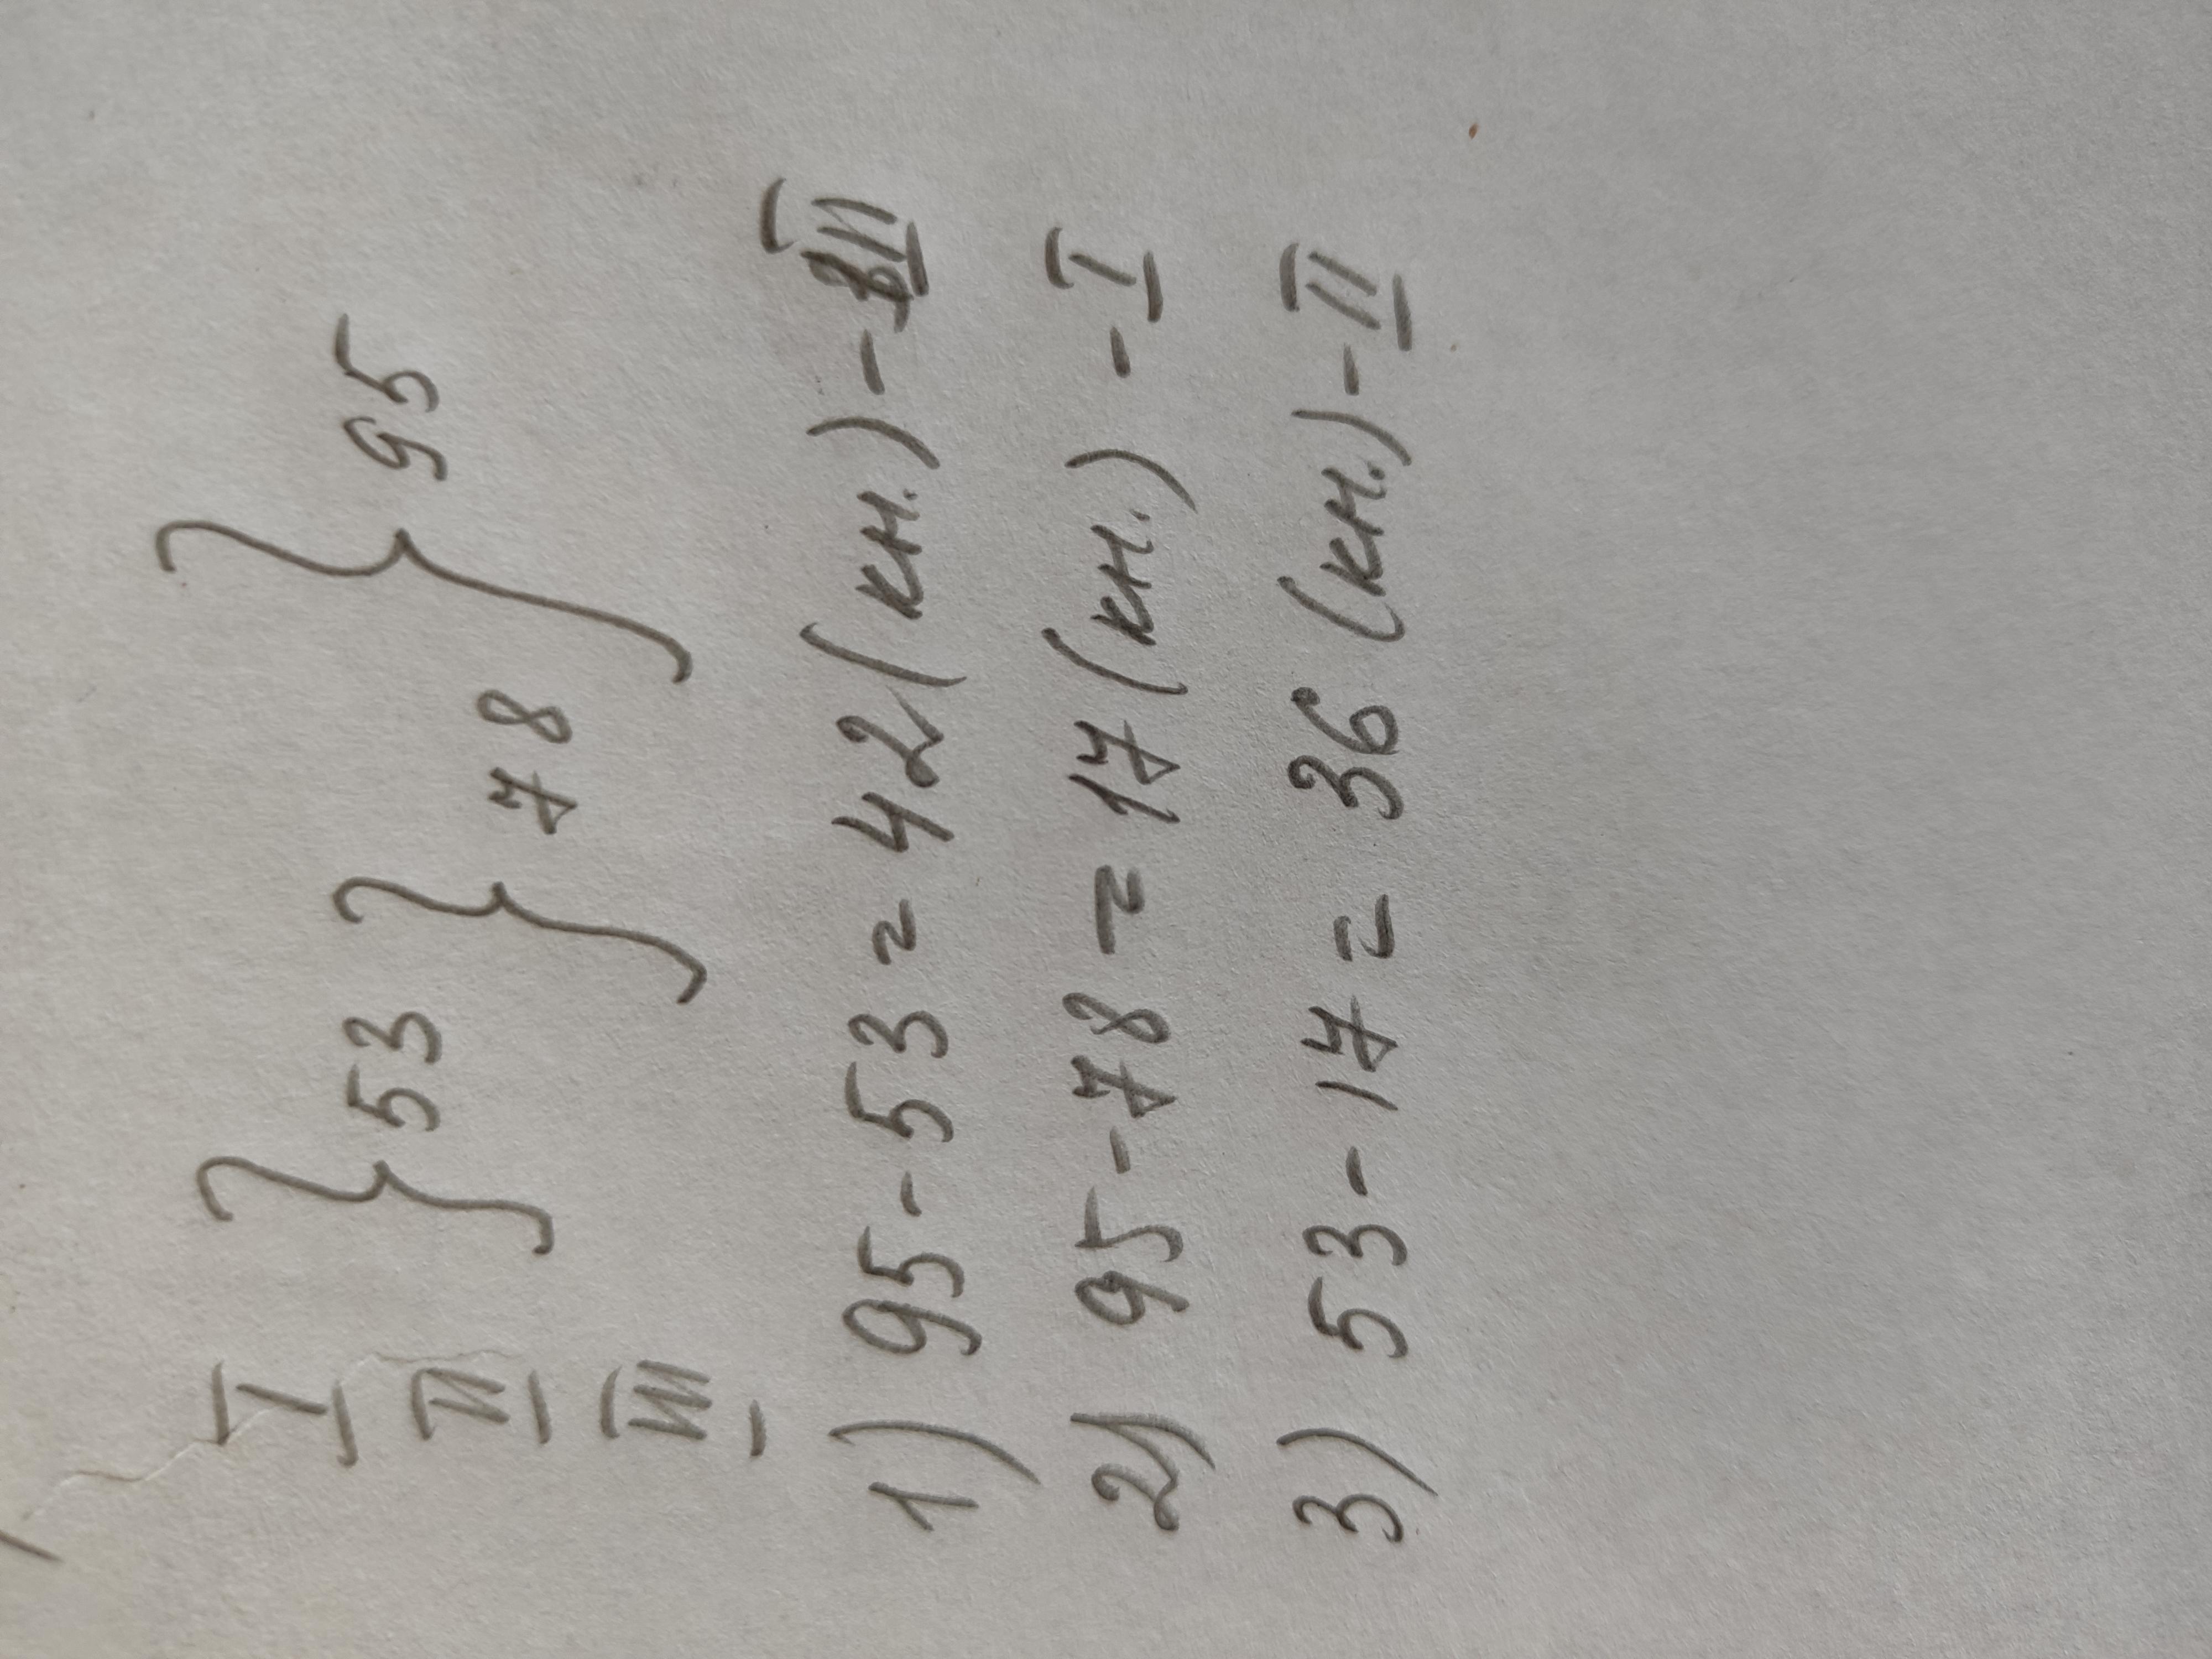 I } 53 } 95
II } 78
III
1) 95-53=42(кн.)-III
2) 95-78=17(кн.)-I
3) 53-17=36(кн.)-II